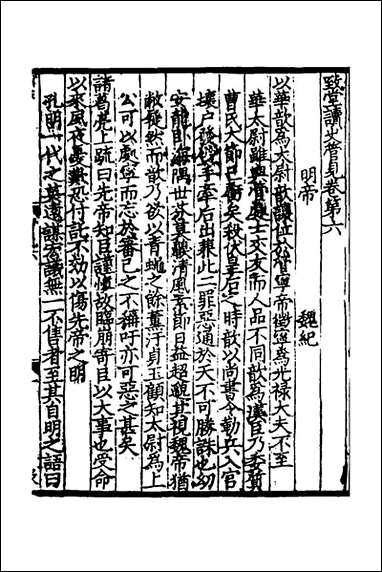 致堂讀史管見卷第六
明帝　魏紀
以華歆為太尉歆讓位於管寧帝徵寧為光祿大夫不至
華太尉雖與管處士交友而人品不同歆為漢臣乃委質
曹氏大節已虧矣殺伏皇后之時歆以尚書令勒兵入宮
壞户發壁手牽后出葬此二罪惡通於天不可勝誅也幼
安龍卧海隅世亦莫親清風素節日益超邈其視魏帝猶
敝屣然而歆乃欲以青蠅之餘薫汙貞玉顧知太尉為上
公可以處寧而忘於審己之不稱吁亦可惡之甚矣
諸葛亮上疏曰先帝知臣謹慎故臨崩寄臣以大事也受命
以來夙夜憂歎恐付託不効以傷先帝之明
孔明一代之英遠謀者議無一不售者至其自明之語曰